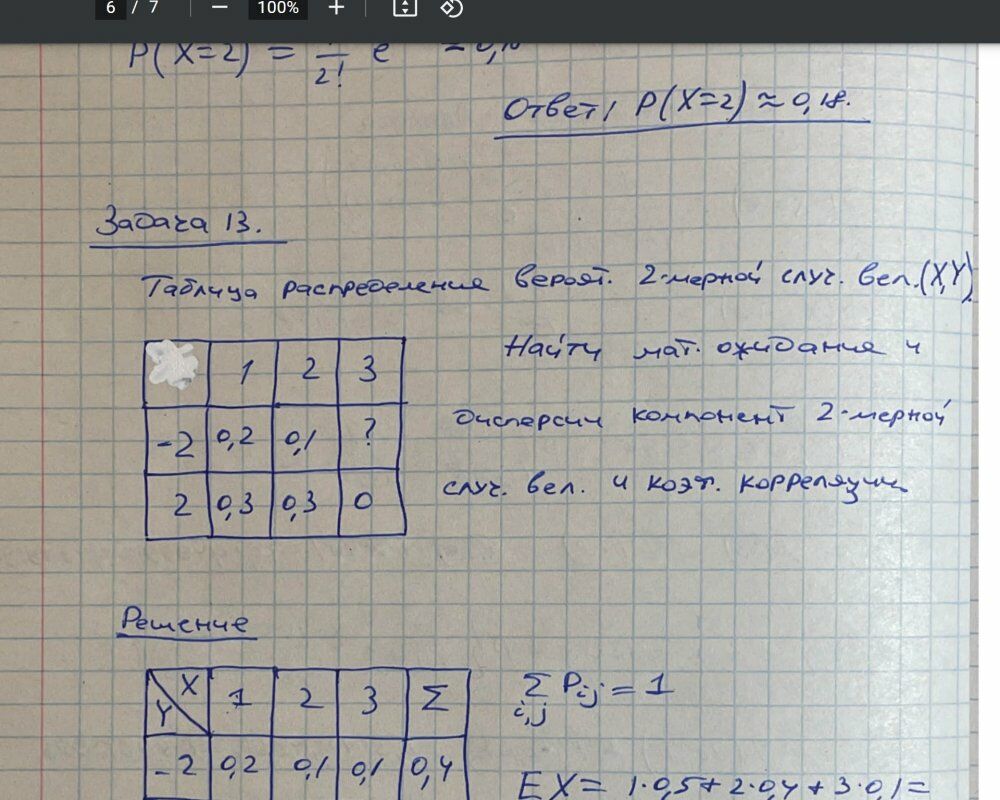 6 / 7 — 100% +
P(X=2) = 2! e
Ответ, P(X=2) ≈ 0,18.
Задача 13.
Таблица распределения вероят. 2-мерной случ. вел.(X,Y)
Найти мат. ожидания и
1 2 3
дисперсии компонент 2-мерной
-2 0,2 0,1 ?
случ. вел. и коэф. корреляции
2 0,3 0,3 0
Решение
X
Y
1 2 3 Σ
Σ Pij = 1
i,j
-2 0,2 0,1 0,1 0,4
EX = 1·0,5 + 2·0,4 + 3·0,1 =